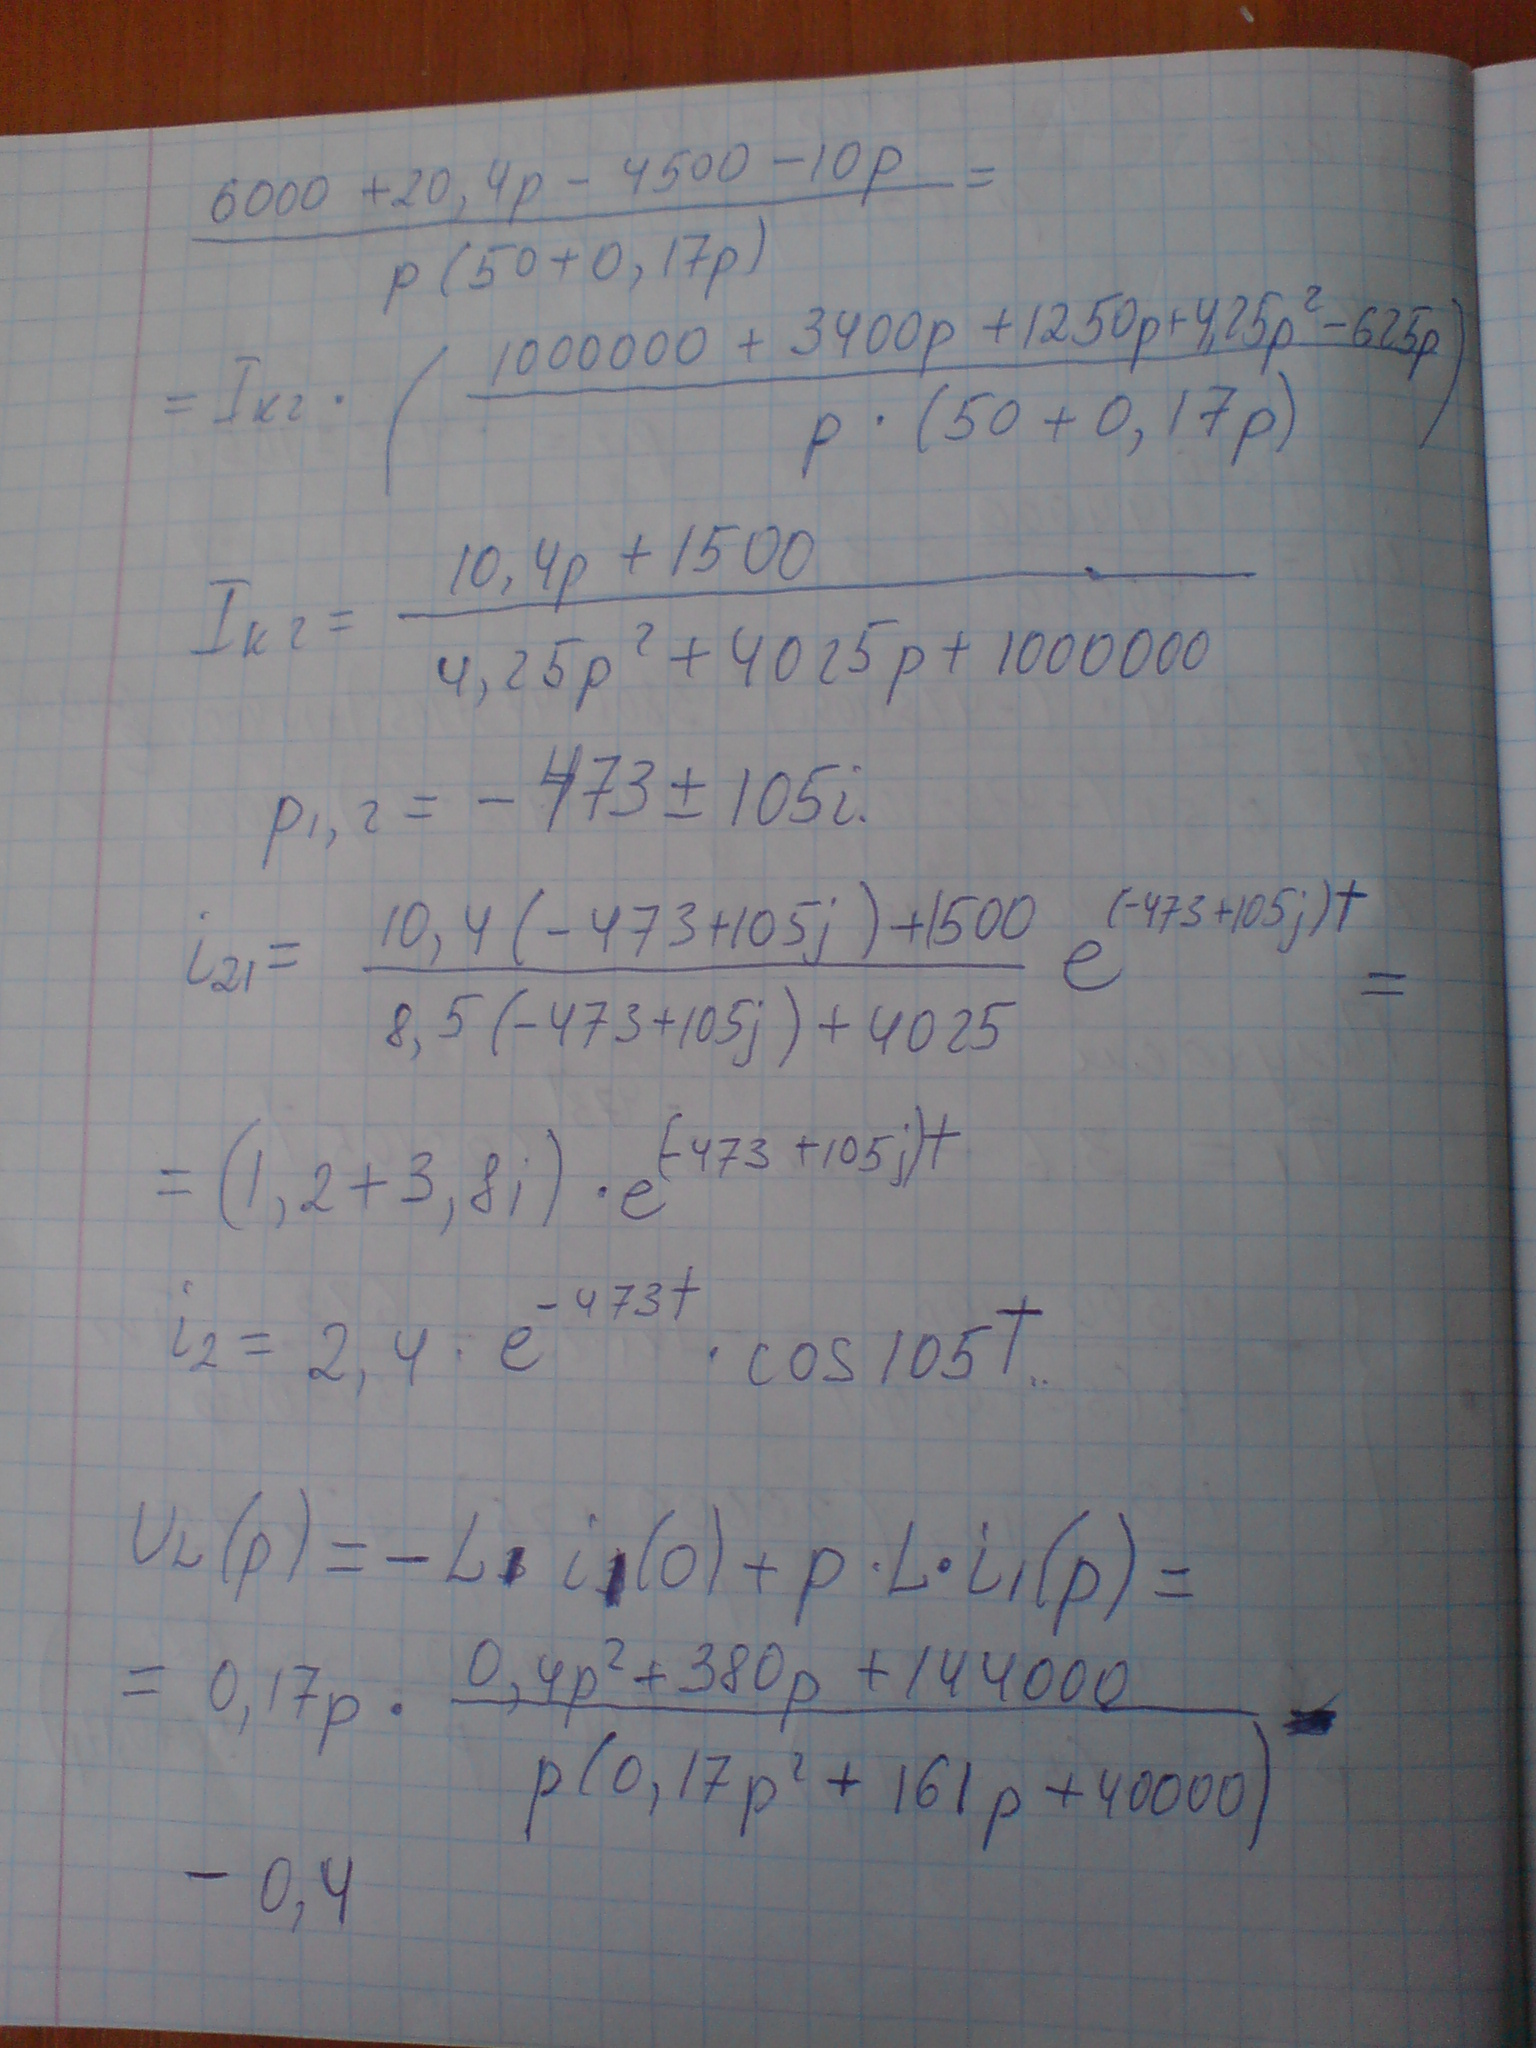 6000 + 20,4p - 4500 - 10p =
p(50 + 0,17p)
= Iк2 · ( 1000000 + 3400p + 1250p + 4,25p² - 625p )
p · (50 + 0,17p)
Iк2 = 10,4p + 1500
4,25p² + 4025p + 1000000
p1,2 = - 473 ± 105i.
i21 = 10,4(-473+105j) + 1500 e^(-473+105j)t =
8,5(-473+105j) + 4025
= (1,2 + 3,8i) · e^(-473+105j)t
i2 = 2,4 · e^-473t · cos 105t..
UL(p) = - L i1(0) + p · L · i1(p) =
= 0,17p · 0,4p² + 380p + 144000 -
p(0,17p² + 161p + 40000)
- 0,4